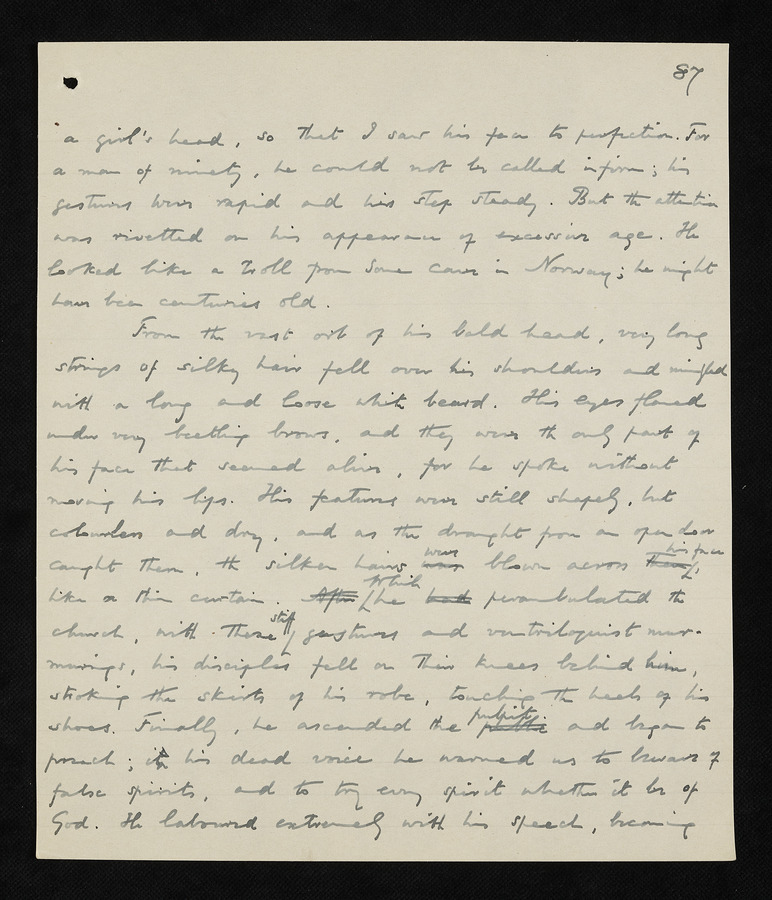 87
a girl's head, so that I saw his face to perfection. For
a man of ninety, he could not be called infirm; his
gestures were rapid and his step steady. But the attention
was rivetted on his appearance of excessive age. He
looked like a troll from some cave in Norway; he might
have been centuries old.
From the vast orb of his bald head, very long
strings of silky hair fell over his shoulders and mingled
with a long and loose white beard. His eyes flared
under very beetling brows, and they were the only part of
his face that seemed alive, for he spoke without
moving his lips. His features were still shapely, but
colourless and dry, and as the draught from an open door
caught them, the silken hairs were blown across his face
like a thin curtain. While he perambulated the
church, with these stiff gestures and ventriloquist mur-
murings, his disciples fell on their knees behind him,
stroking the skirts of his robe, touching the heels of his
shoes. Finally, he ascended the pulpit and began to
preach; in his dead voice he warned us to beware of
false spirits, and to try every spirit whether it be of
God. He laboured extremely with his speech, becoming